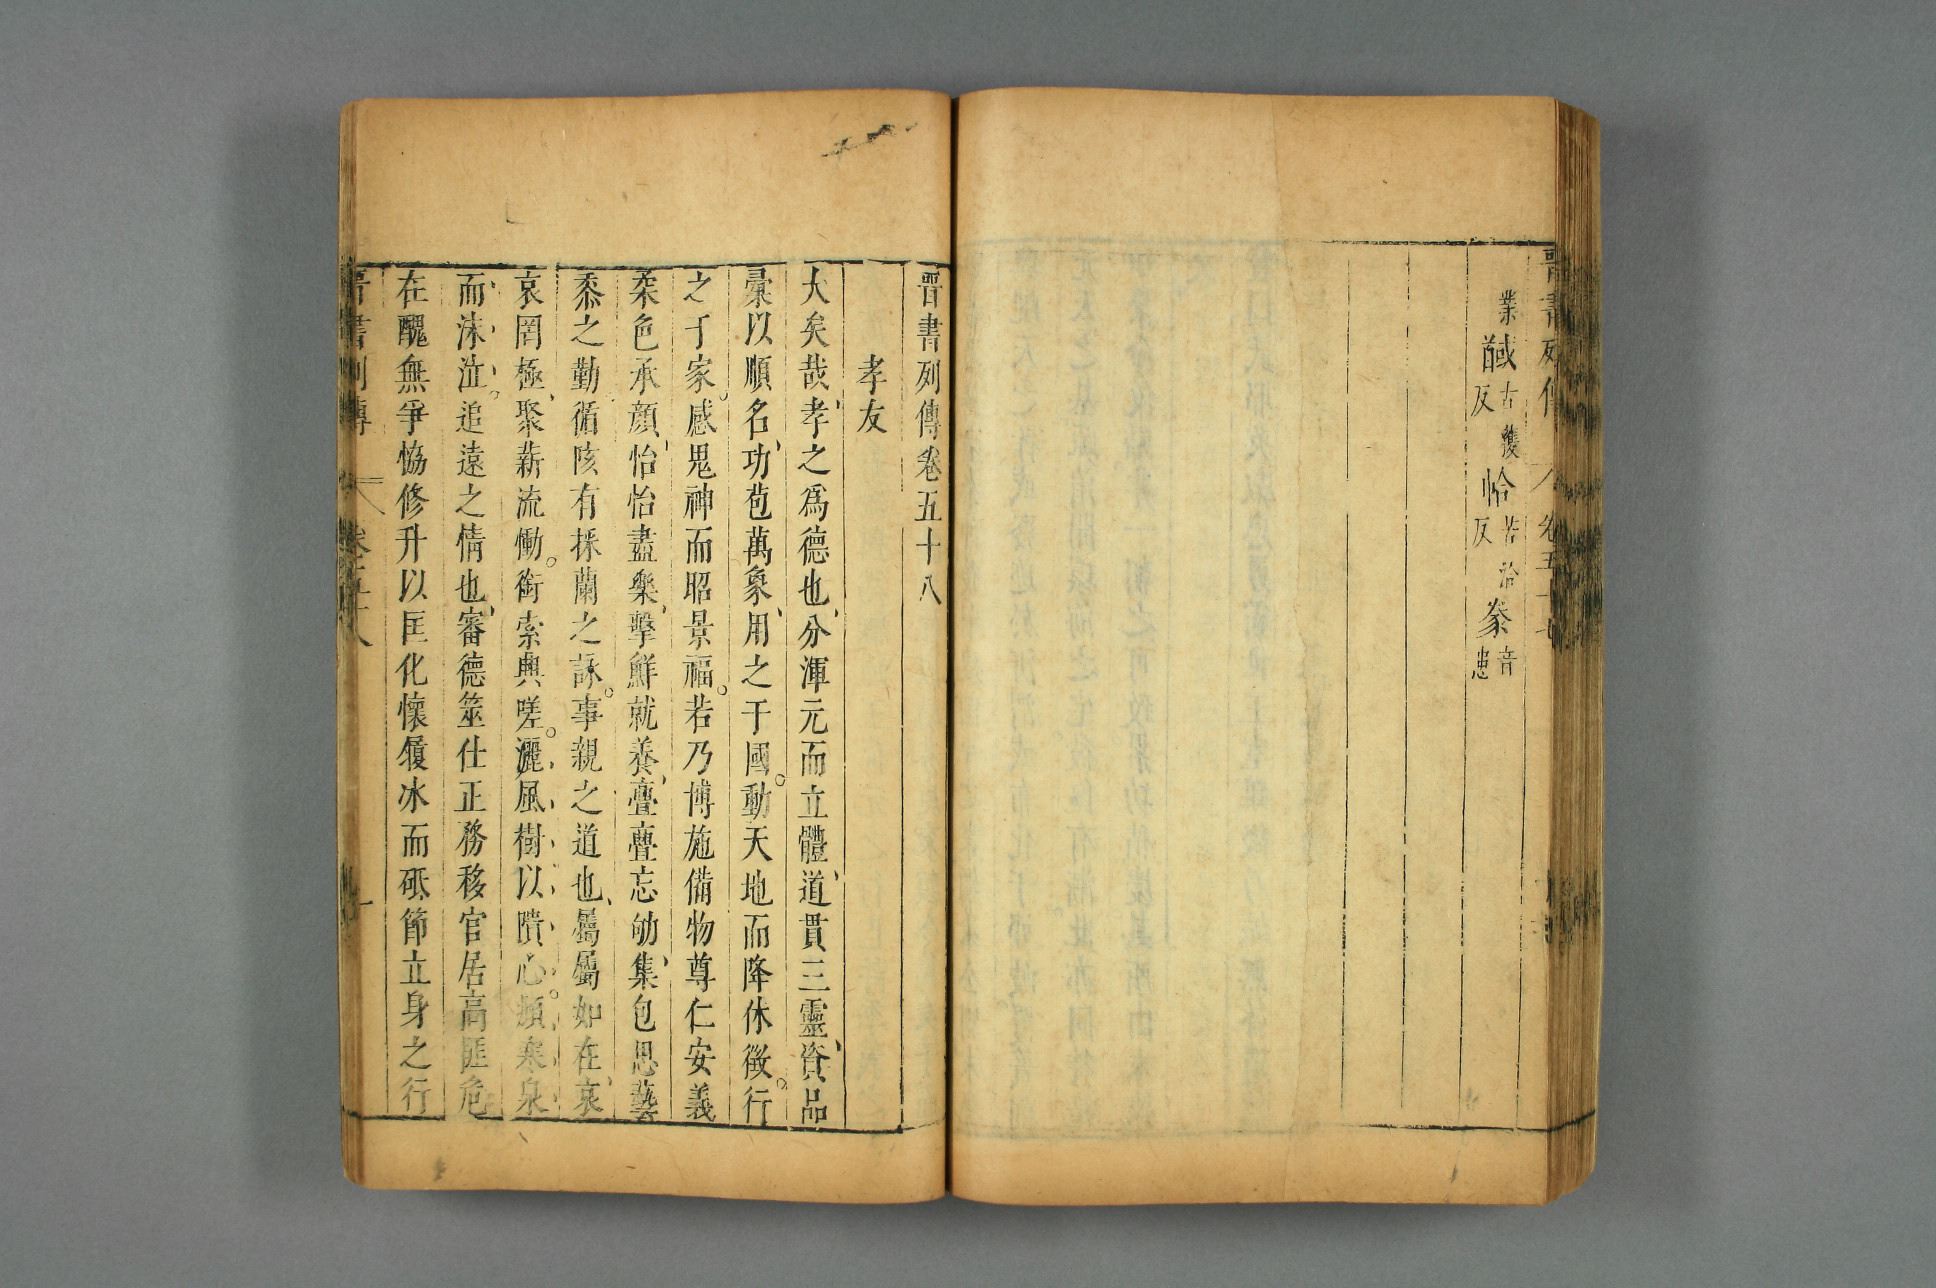 晉書列傳 卷五十七
業 馘古獲反 恰苦洽反 豢音患
晉書列傳卷五十八
孝友
大矣哉、孝之爲德也、分渾元而立體、道貫三靈、資品
彙以順名、功苞萬象、用之于國。動天地而降休徵。行
之于家。感鬼神而昭景福。若乃博施備物尊仁安義
柔色承顏、怡怡盡樂、擊鮮就養、亹亹忘劬、集包思藝
黍之勤循陔有採蘭之詠。事親之道也、屬屬如在、哀
哀罔極、聚薪流慟。銜索興嗟。灑風樹以隤心。頫寒泉
而沬泣。追遠之情也、審德筮仕正務移官居高匪危
在醜無爭恊修升以匡化懷履冰而砥節立身之行
晉書列傳 卷五十八 一